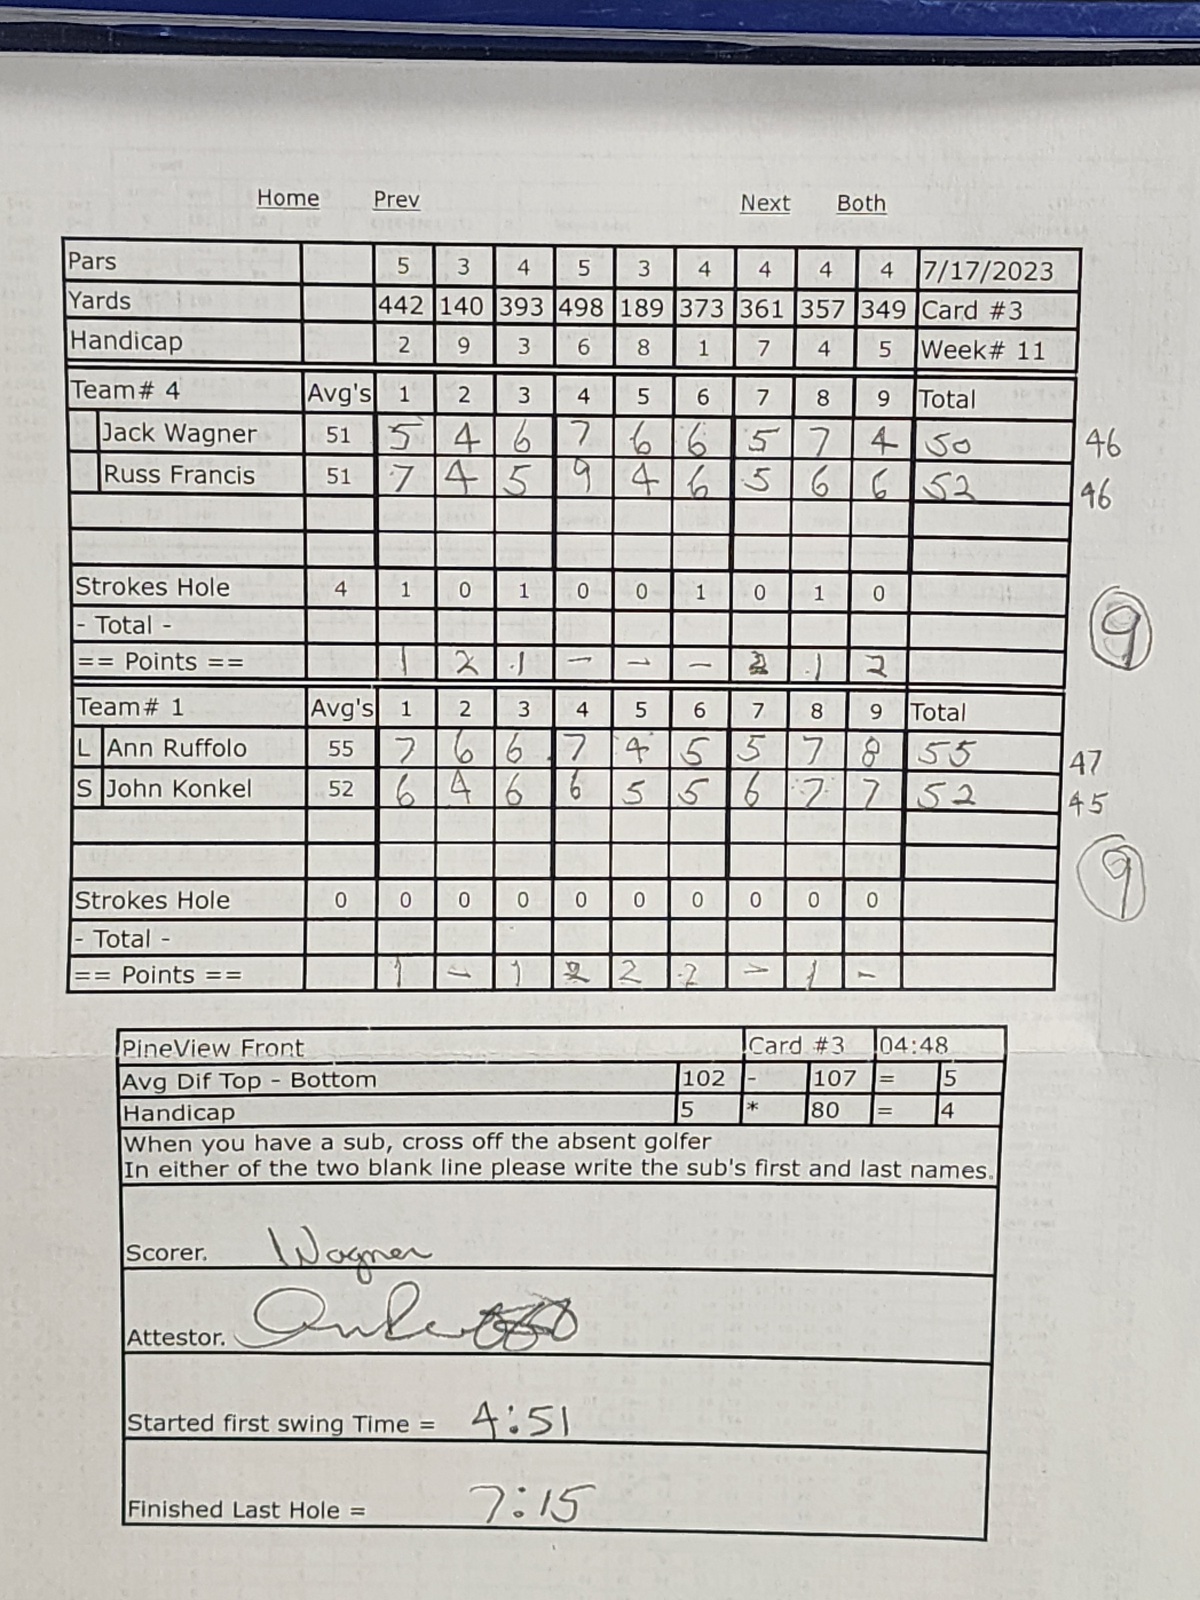 Home Prev Next Both
Pars 5 3 4 5 3 4 4 4 4 7/17/2023
Yards 442 140 393 498 189 373 361 357 349 Card #3
Handicap 2 9 3 6 8 1 7 4 5 Week# 11
Team# 4 Avg's 1 2 3 4 5 6 7 8 9 Total
Jack Wagner 51 5 4 6 7 6 6 5 7 4 50 46
Russ Francis 51 7 4 5 9 4 6 5 6 6 52 46
Strokes Hole 4 1 0 1 0 0 1 0 1 0
- Total - 9
== Points == 1 2 1 - - - 2 1 2
Team# 1 Avg's 1 2 3 4 5 6 7 8 9 Total
L Ann Ruffolo 55 7 6 6 7 4 5 5 7 8 55 47
S John Konkel 52 6 4 6 6 5 5 6 7 7 52 45
9
Strokes Hole 0 0 0 0 0 0 0 0 0 0
- Total -
== Points == 1 - 1 2 2 2 - 1 -
PineView Front Card #3 04:48
Avg Dif Top - Bottom 102 - 107 = 5
Handicap 5 * 80 = 4
When you have a sub, cross off the absent golfer
In either of the two blank line please write the sub's first and last names.
Scorer. Wagner
Attestor.
Started first swing Time = 4:51
Finished Last Hole = 7:15